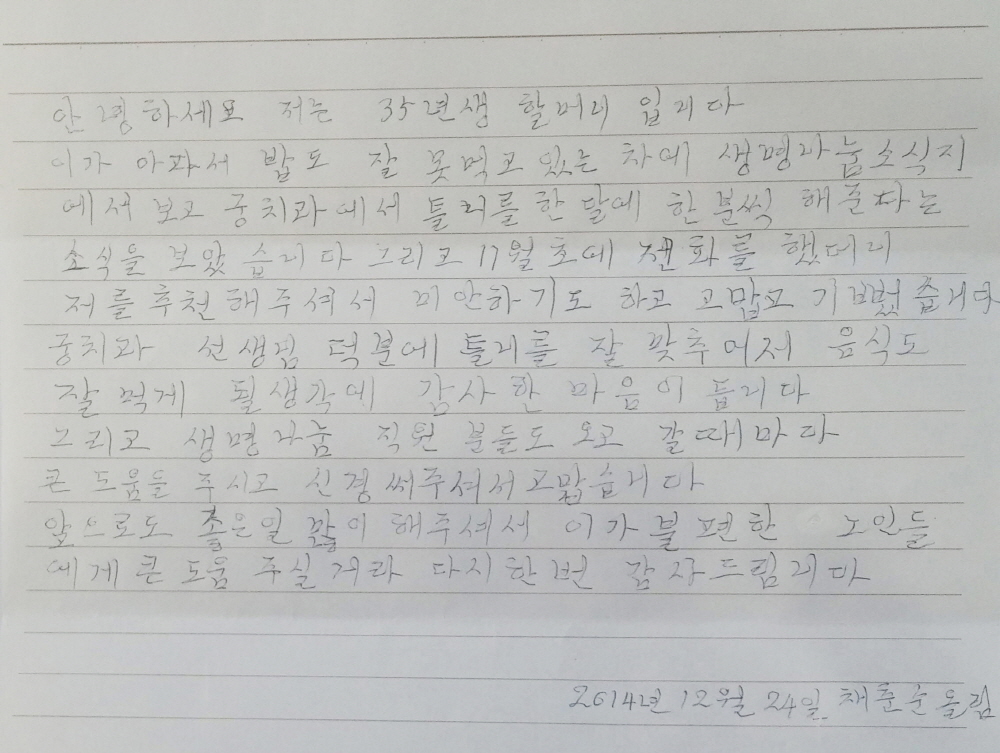 안녕하세요 저는 35년생 할머니 입니다
이가 아파서 밥도 잘 못먹고 있는 차에 생명나눔소식지
에서 보고 궁치과에서 틀니를한달에 한분씩 해준다는
소식을 보았습니다 그리고 11월초에 전화를 했더니
저를추천해주셔서 미안하기도 하고 고맙고 기뻤습니다
궁치과 선생님 덕분에 틀니를 잘 맞추어서 음식도
잘먹게 될생각에 감사한 마음이 듭니다
그리고 생명나눔 직원분들도 오고 갈때마다
큰 도움들 주시고 신경써주셔서고맙습니다
앞으로도 좋은일 많이 해주셔서 이가불편한 노인들
에게큰도움 주실거라 다시한번 감사드립니다
2014년 12월 24일 채춘순올림